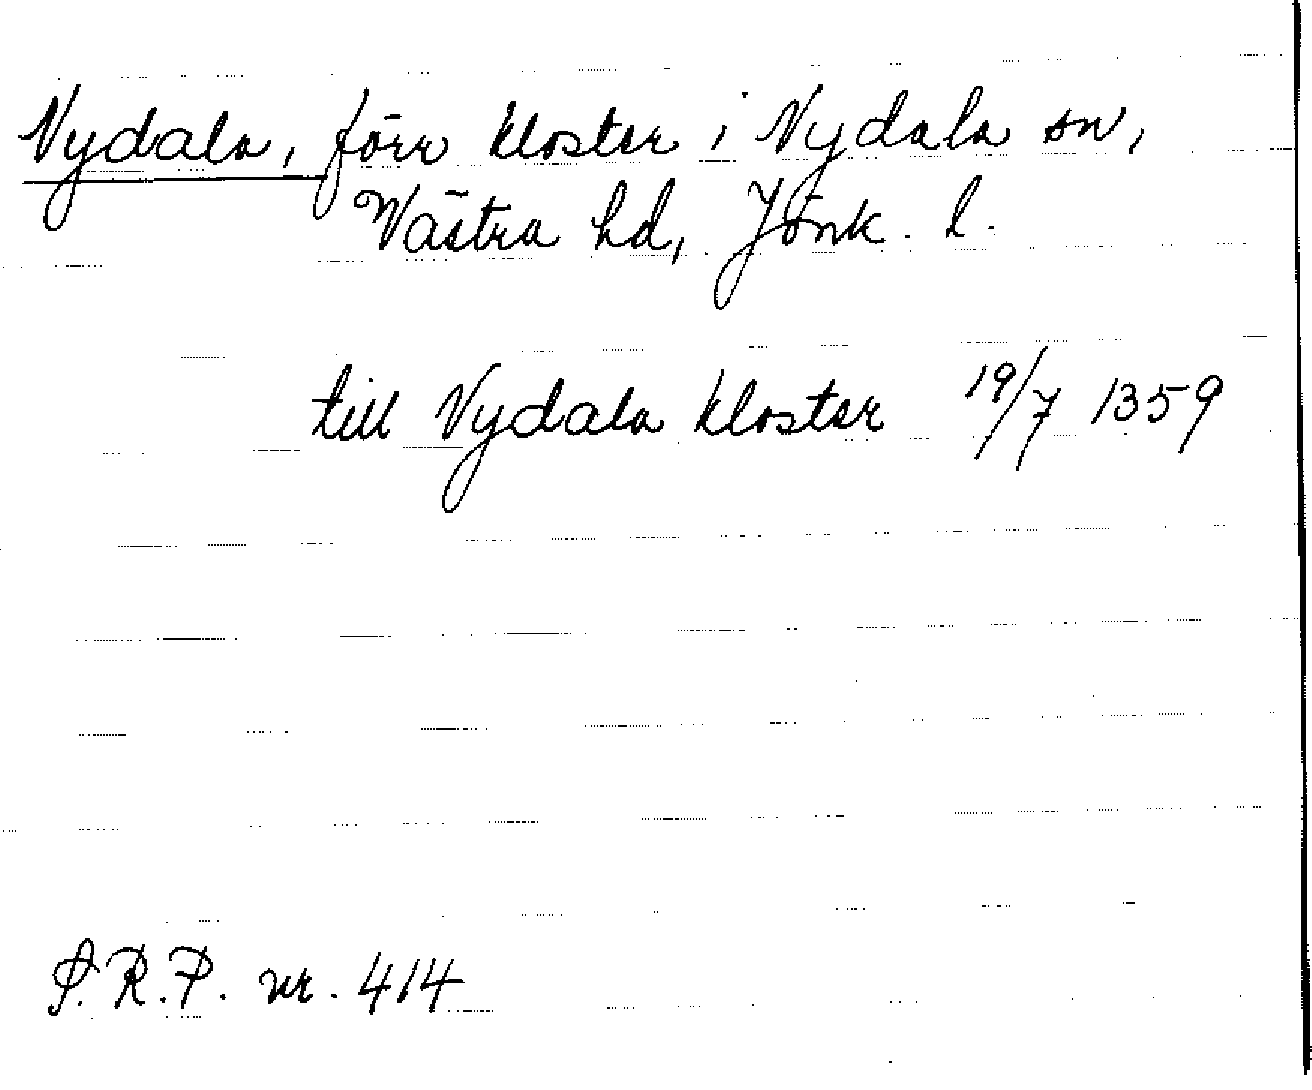 Nydala, förr kloster i Nydala sn,
Västra hd, Jönk. l.
till Nydala kloster 19/7 1359
S.R.P. nr. 414